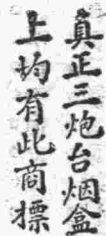 真正三炮台烟盒
上均有此商摽